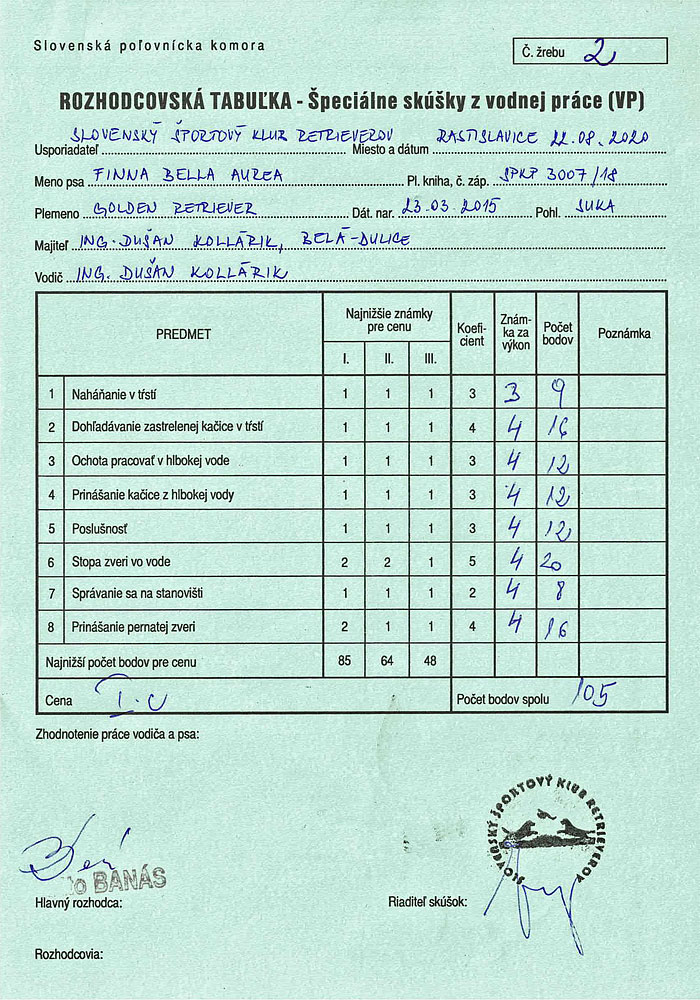 Slovenská poľovnícka komora
Č. žrebu 2
ROZHODCOVSKÁ TABUĽKA - Špeciálne skúšky z vodnej práce (VP)
Usporiadateľ SLOVENSKÝ ŠPORTOVÝ KLUB RETRIEVEROV Miesto a dátum RASTISLAVICE 22.08.2020
Meno psa FINNA BELLA AUREA Pl. kniha, č. záp. SPKP 3007/18
Plemeno GOLDEN RETRIEVER Dát. nar. 23.03.2015 Pohl. SUKA
Majiteľ ING. DUŠAN KOLLÁRIK, BELÁ-DULICE
Vodič ING. DUŠAN KOLLÁRIK
PREDMET Najnižšie známky pre cenu I. II. III. Koefi-cient Znám-ka za výkon Počet bodov Poznámka
1 Naháňanie v tŕstí 1 1 1 3 3 9
2 Dohľadávanie zastrelenej kačice v tŕstí 1 1 1 4 4 16
3 Ochota pracovať v hlbokej vode 1 1 1 3 4 12
4 Prinášanie kačice z hlbokej vody 1 1 1 3 4 12
5 Poslušnosť 1 1 1 3 4 12
6 Stopa zveri vo vode 2 2 1 5 4 20
7 Správanie sa na stanovišti 1 1 1 2 4 8
8 Prinášanie pernatej zveri 2 1 1 4 4 16
Najnižší počet bodov pre cenu 85 64 48
Cena I. C Počet bodov spolu 105
Zhodnotenie práce vodiča a psa:
SLOVENSKÝ ŠPORTOVÝ KLUB RETRIEVEROV
BANÁS
Hlavný rozhodca: Riaditeľ skúšok:
Rozhodcovia: